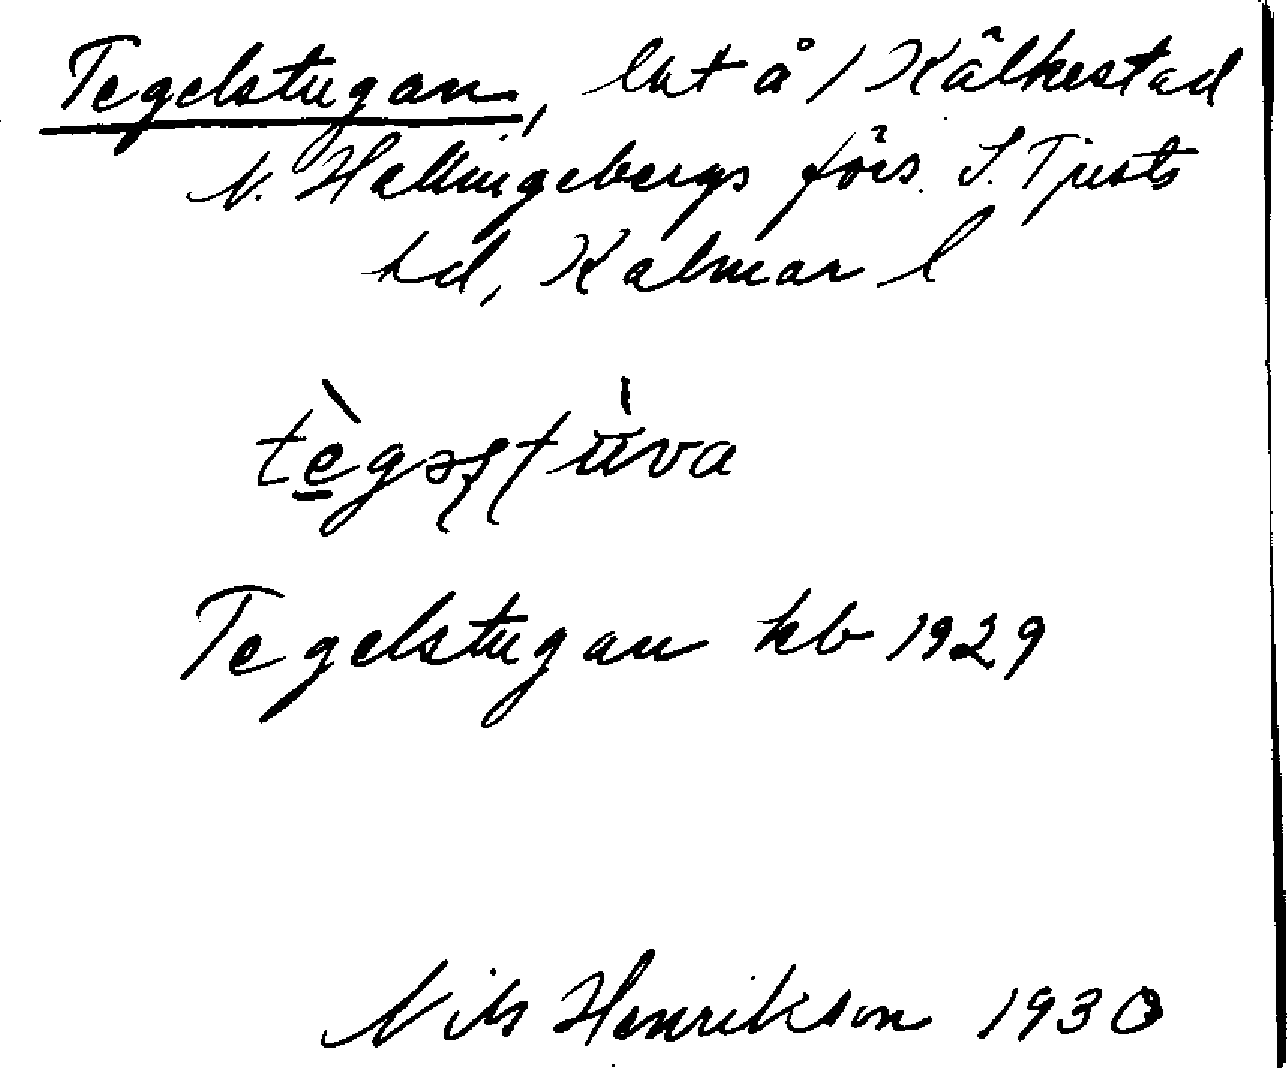 Tegelstugan, lht å / Kälkestad
N. Hallingebergs förs. S. Tjusts
hd, Kalmar l
Tegelstugan kb 1929
Nils Henrikson 1930